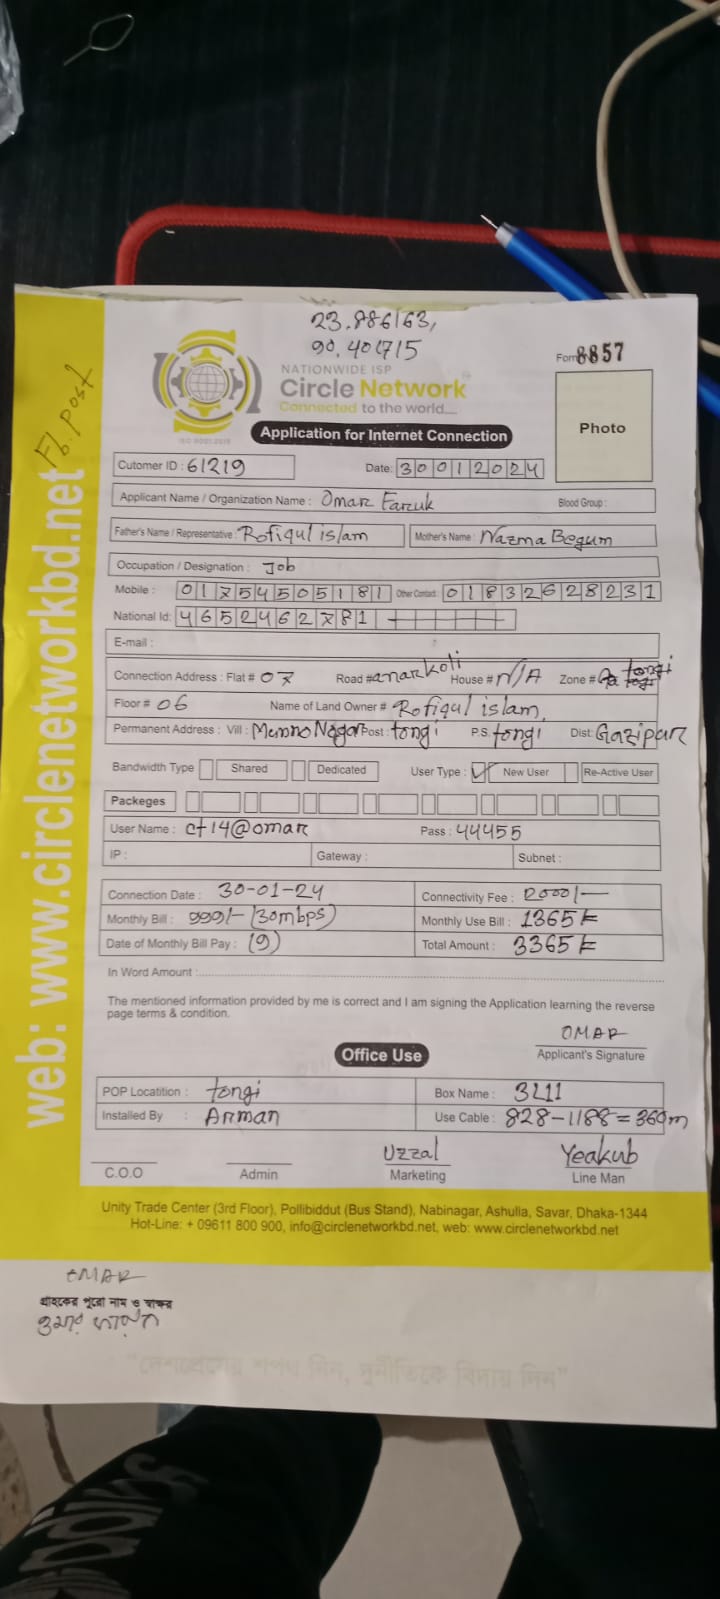 23.886163,
90.401715
Fb. post
NATIONWIDE ISP
Circle Network
Connected to the world....
ISO 9001:2015
Form 8857
Photo
Application for Internet Connection
Cutomer ID : 61219 Date: 30012024
Applicant Name / Organization Name : Omar Faruk Blood Group :
Father's Name / Representative : Rofiqul islam Mother's Name : Nazma Begum
Occupation / Designation : Job
Mobile : 01754505181 Other Contact: 01832628231
National Id: 4652462781
E-mail :
Connection Address : Flat # 07 Road # anarkoli House # N/A Zone # tongi
Floor # 06 Name of Land Owner # Rofiqul islam.
Permanent Address : Vill : Munno Nagar Post : tongi P.S. tongi Dist: Gazipur
Bandwidth Type Shared Dedicated User Type : ✓ New User Re-Active User
Packeges
User Name : ct14@omar Pass : 44455
IP : Gateway : Subnet :
Connection Date : 30-01-24 Connectivity Fee : 2000/-
Monthly Bill : 999/- (30mbps) Monthly Use Bill : 1365 ৳
Date of Monthly Bill Pay : (9) Total Amount : 3365 ৳
In Word Amount :
The mentioned information provided by me is correct and I am signing the Application learning the reverse
page terms & condition.
OMAR
Applicant's Signature
Office Use
POP Locatition : tongi Box Name : 3L11
Installed By : Arman Use Cable : 828-1188=360m
C.O.O Admin Uzzal Marketing Yeakub Line Man
Unity Trade Center (3rd Floor), Pollibiddut (Bus Stand), Nabinagar, Ashulia, Savar, Dhaka-1344
Hot-Line: + 09611 800 900, info@circlenetworkbd.net, web: www.circlenetworkbd.net
web: www.circlenetworkbd.net
OMAR
গ্রাহকের পুরো নাম ও স্বাক্ষর
ওমার ফারুক
“দেশপ্রেমের শপথ নিন, দুর্নীতিকে বিদায় দিন”